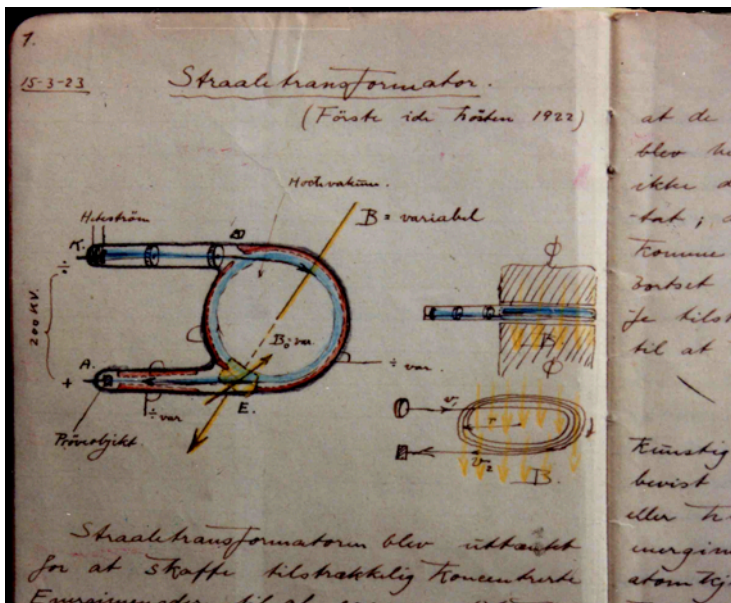 1.
15-3-23
Straaletransformator.
(Förste ide hösten 1922)
Hochvakuum.
B = variabel
Heteström
K.
÷
200 KV.
B₀ = var.
÷ var.
A.
+
÷ var
E.
Pröveobjekt.
ϕ
B
ϕ
v₁
r
v₂
B
Straaletransformatoren blev uttænkt
for at skaffe tilstrækkelig koncentrerte
Energimengder til at
at de
blev
ikke
tat;
komme
bortset
til at
Kunstig
bevist
eller